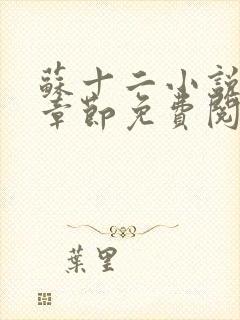 蘇十二小說
章節免費閱
葉里